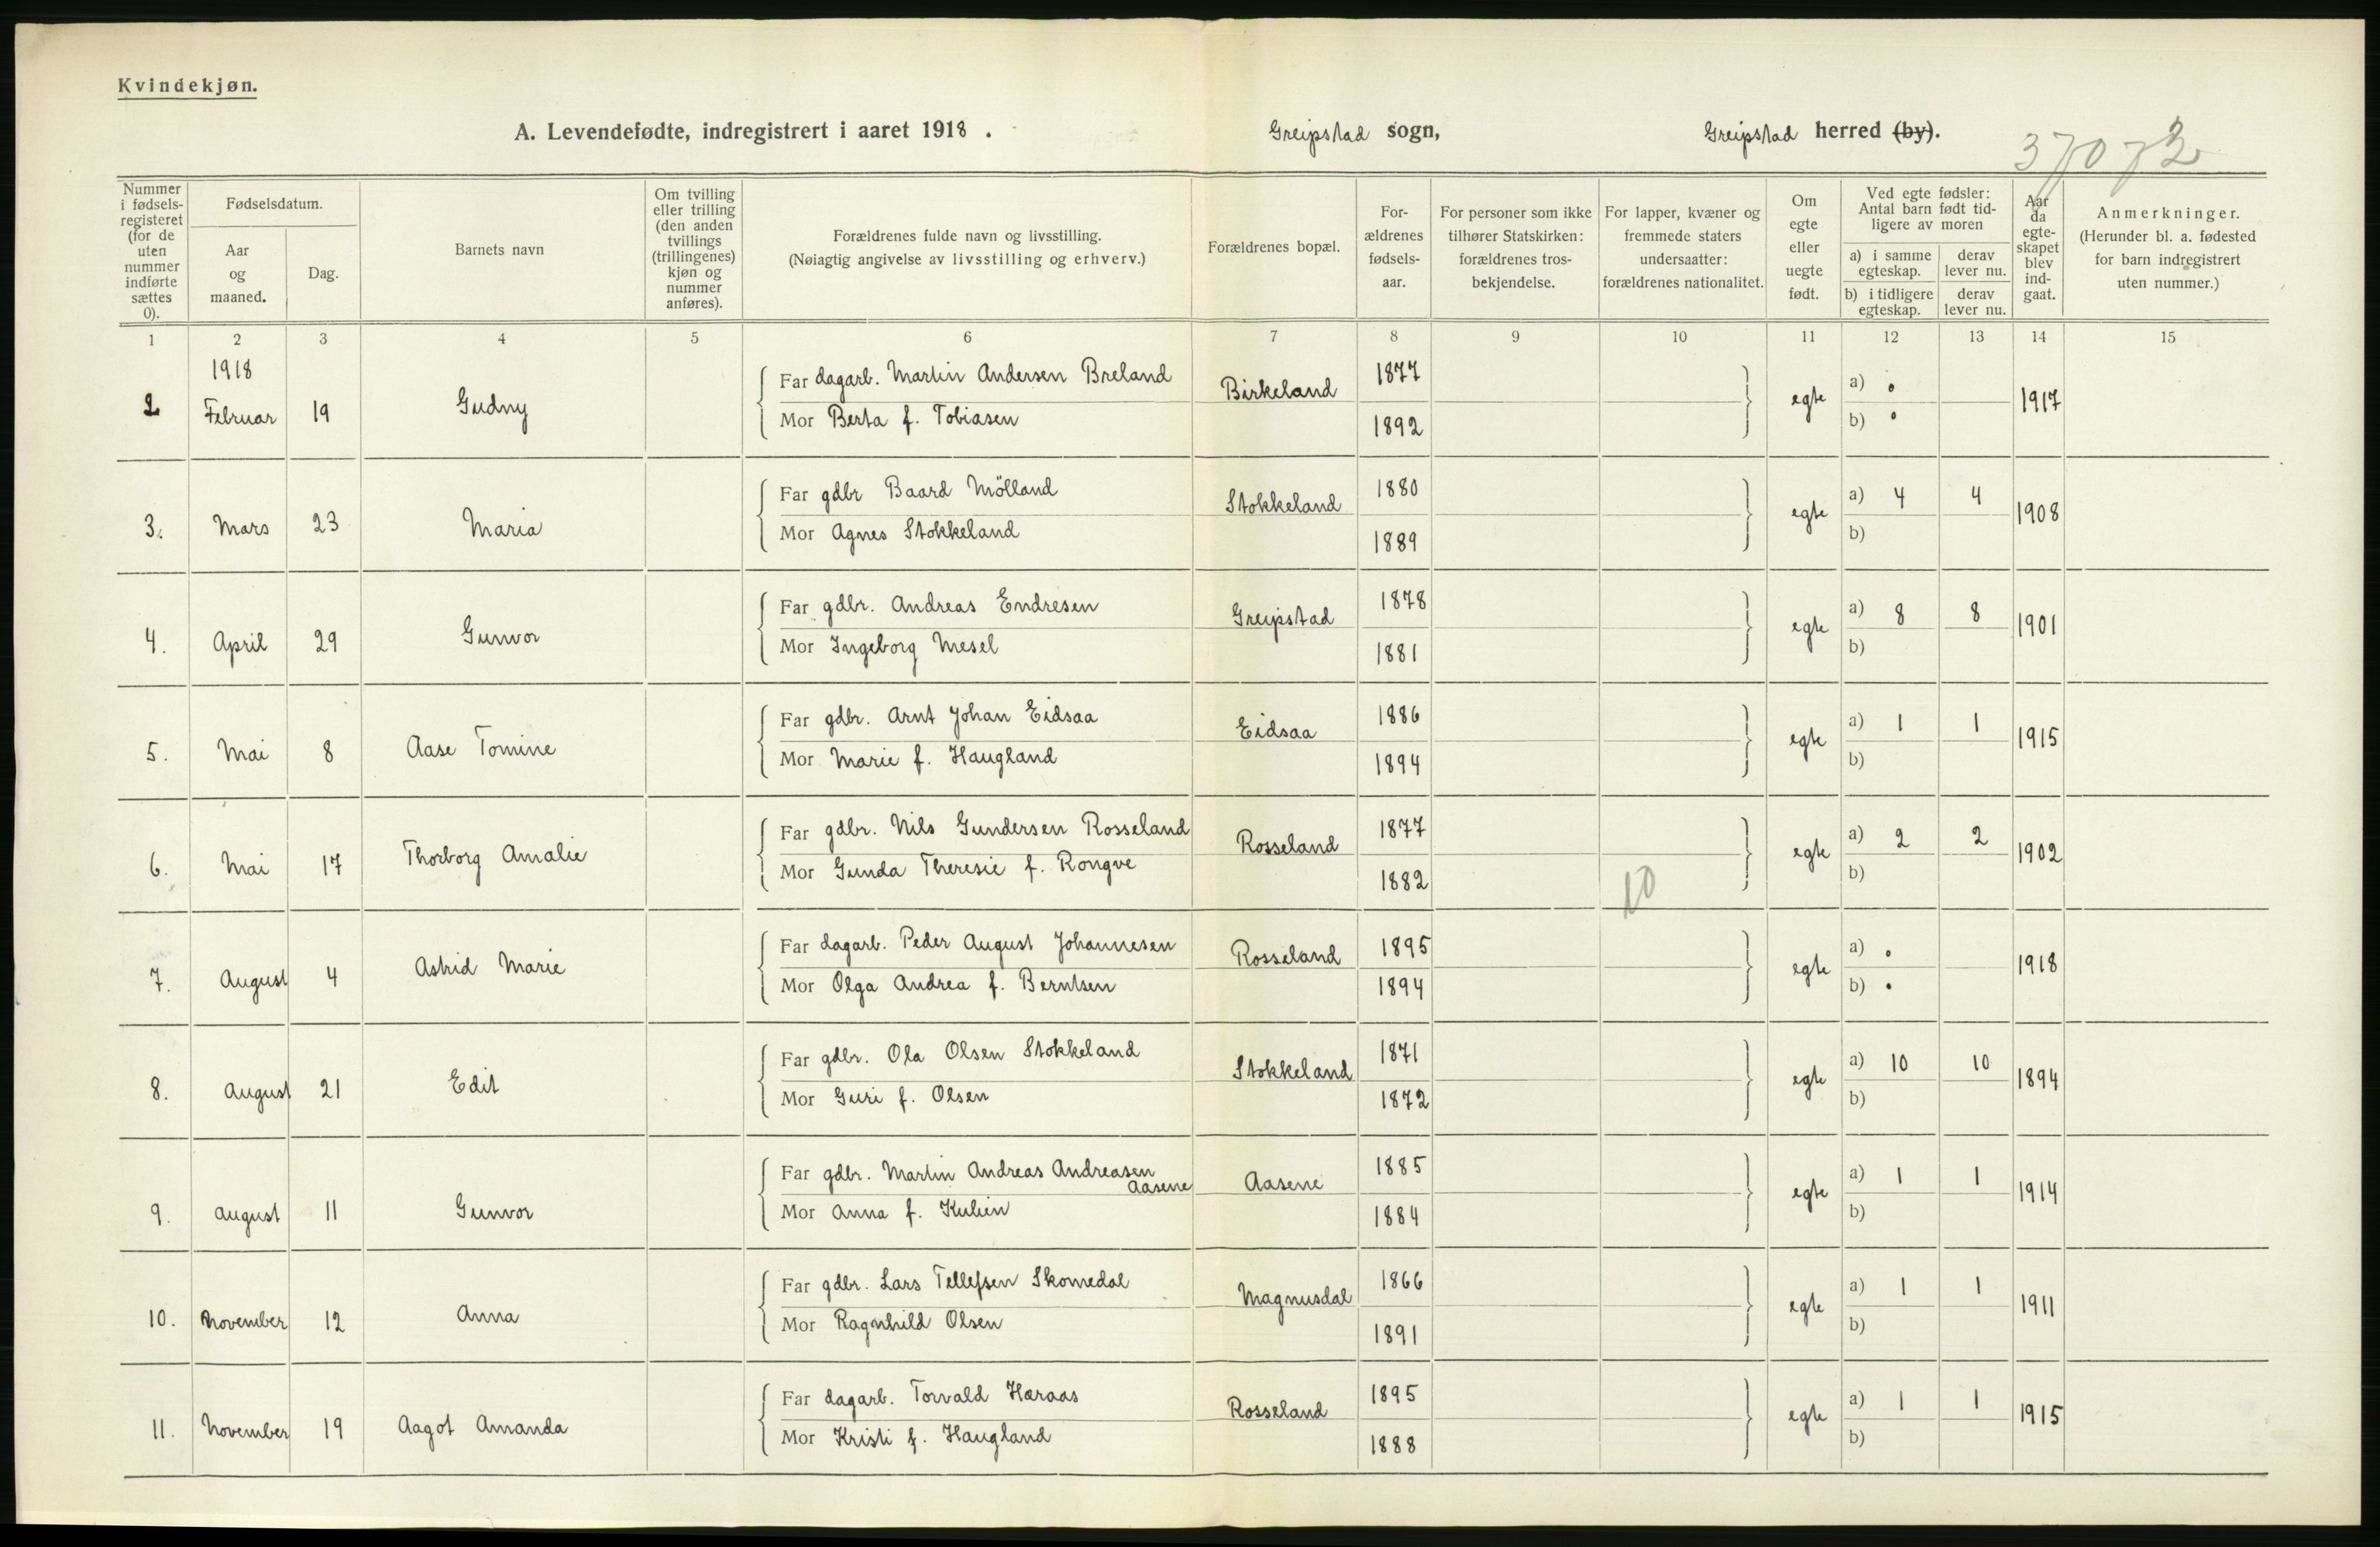 Kvindekjøn.
A. Levendefødte, indregistrert i aaret 1918 . Greipstad sogn, Greipstad herred (by).
37072
Nummer i fødselsregisteret (for de uten nummer indførte sættes 0).
Fødselsdatum.
Aar og maaned.
Dag.
Barnets navn
Om tvilling eller trilling (den anden tvillings (trillingenes) kjøn og nummer anføres).
Forældrenes fulde navn og livsstilling.
(Nøiagtig angivelse av livsstilling og erhverv.)
Forældrenes bopæl.
Forældrenes fødselsaar.
For personer som ikke tilhører Statskirken: forældrenes trosbekjendelse.
For lapper, kvæner og fremmede staters undersaatter: forældrenes nationalitet.
Om egte eller uegte født.
Ved egte fødsler: Antal barn født tidligere av moren
a) i samme egteskap.
derav lever nu.
b) i tidligere egteskap.
derav lever nu.
Aar da egteskapet blev indgaat.
Anmerkninger.
(Herunder bl. a. fødested for barn indregistrert uten nummer.)
1 2 3 4 5 6 7 8 9 10 11 12 13 14 15
1918
2 Februar 19 Gudny Far dagarb. Martin Andersen Breland Birkeland 1877 egte a) • 1917
Mor Berta f. Tobiasen 1892 b) •
3. Mars 23 Maria Far gdbr Baard Mölland Stokkeland 1880 egte a) 4 4 1908
Mor Agnes Stokkeland 1889 b)
4. April 29 Gunvor Far gdbr. Andreas Endresen Greipstad 1878 egte a) 8 8 1901
Mor Ingeborg Mesel 1881 b)
5. Mai 8 Aase Tomine Far gdbr. Arnt Johan Eidsaa Eidsaa 1886 egte a) 1 1 1915
Mor Marie f. Haugland 1894 b)
6. Mai 17 Thorborg Amalie Far gdbr. Nils Gundersen Rosseland Rosseland 1877 egte a) 2 2 1902
Mor Gunda Theresie f. Rongve 1882 b)
10
7. August 4 Astrid Marie Far dagarb. Peder August Johannesen Rosseland 1895 egte a) • 1918
Mor Olga Andrea f. Berntsen 1894 b) •
8. August 21 Edit Far gdbr. Ola Olsen Stokkeland Stokkeland 1871 egte a) 10 10 1894
Mor Guri f. Olsen 1872 b)
9. August 11 Gunvor Far gdbr. Martin Andreas Andreasen Aasene Aasene 1885 egte a) 1 1 1914
Mor Anna f. Kulien 1884 b)
10. November 12 Anna Far gdbr. Lars Tellefsen Skomedal Magnusdal 1866 egte a) 1 1 1911
Mor Ragnhild Olsen 1891 b)
11. November 19 Aagot Amanda Far dagarb. Torvald Haraas Rosseland 1895 egte a) 1 1 1915
Mor Kristi f. Haugland 1888 b)